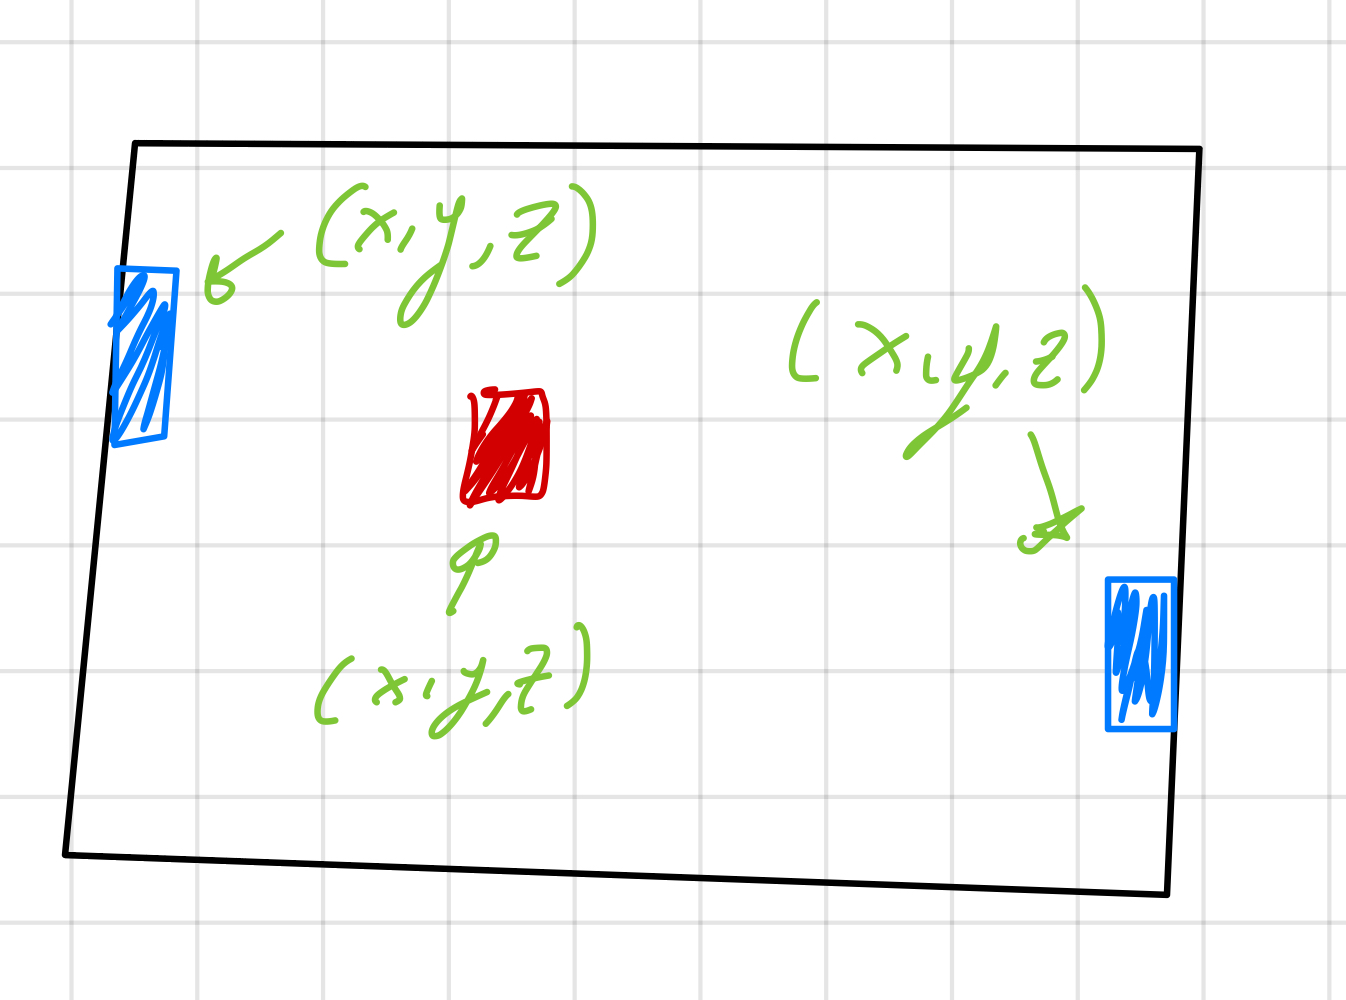 (x, y, z)
(x, y, z)
(x, y, z)